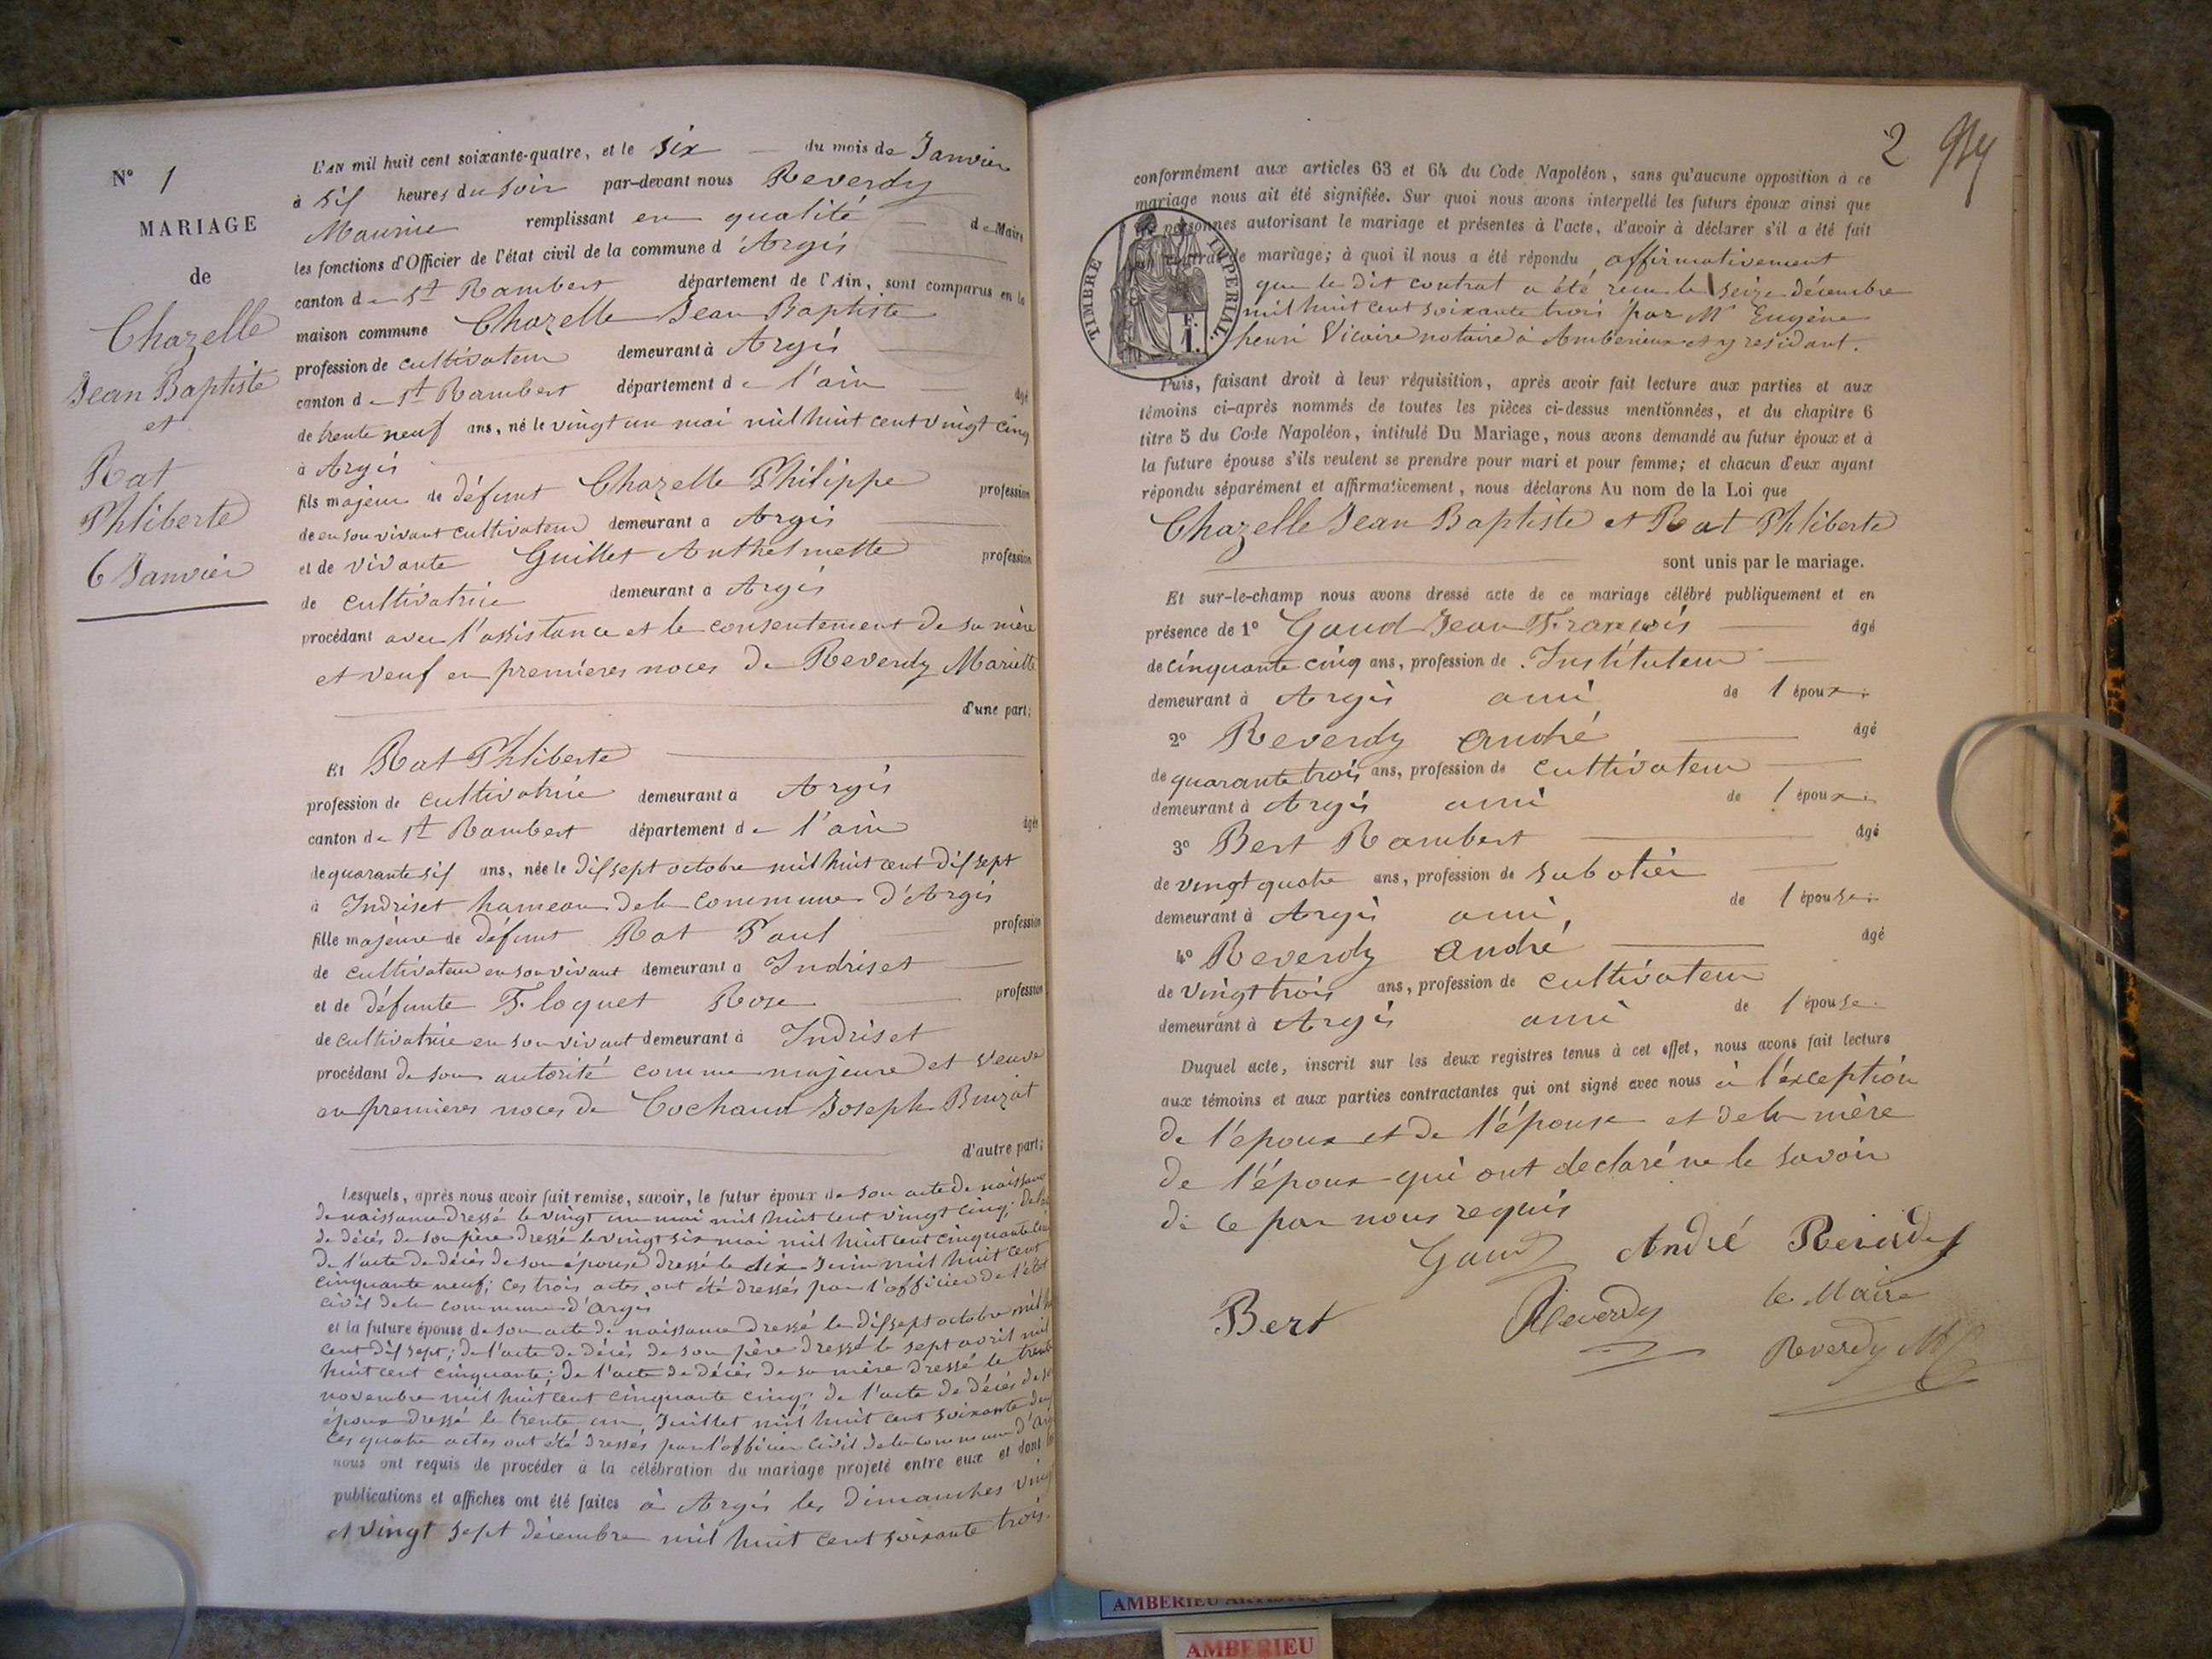 N° 1
MARIAGE
de
Chazelle
Jean Baptiste
et
Rat
Phliberte
6 Janvier
L'AN mil huit cent soixante-quatre, et le six du mois de Janvier
à six heures du soir par-devant nous Reverdy
Maurice remplissant en qualité de Maire
les fonctions d'Officier de l'état civil de la commune d'Argis
canton de St Rambert département de l'Ain, sont comparus en la
maison commune Chazelle Jean Baptiste
profession de cultivateur demeurant à Argis
canton de St Rambert département de l'ain âgé
de trente neuf ans, né le vingt un mai mil huit cent vingt cinq
à Argis
fils majeur de défunt Chazelle Philippe profession
de en son vivant cultivateur demeurant à Argis
et de vivante Guillet Anthelmette profession
de cultivatrice demeurant à Argis
procédant avec l'assistance et le consentement de sa mère
et veuf en premières noces de Reverdy Mariette
d'une part;
Et Rat Phliberte
profession de cultivatrice demeurant à Argis
canton de St Rambert département de l'ain âgée
de quarante six ans, née le dix sept octobre mil huit cent dix sept
à Indriset hameau de la commune d'Argis
fille majeure de défunt Rat Paul profession
de cultivateur en son vivant demeurant à Indriset
et de défunte Floquet Rose profession
de cultivatrice en son vivant demeurant à Indriset
procédant de son autorité comme majeure et veuve
en premières noces de Cochaud Joseph
d'autre part;
Lesquels, après nous avoir fait remise, savoir, le futur époux de son acte de naissance
de naissance dressé le vingt un mai mil huit cent vingt cinq;
de décès de son père dressé le vingt six mai mil huit cent cinquante
de l'acte de décès de son épouse dressé le dix Juin mil huit cent
cinquante neuf; ces trois actes ont été dressés par l'officier de l'état
civil de la commune d'Argis
et la future épouse de son acte de naissance dressé le dix sept octobre mil
cent dix sept; de l'acte de décès de son père dressé le sept avril mil
huit cent cinquante; de l'acte de décès de sa mère dressé le trente
novembre mil huit cent cinquante cinq; de l'acte de décès de
époux dressé le trente un Juillet mil huit cent soixante
ces quatre actes ont été dressés par l'officier civil de la commune
nous ont requis de procéder à la célébration du mariage projeté entre eux et dont les
publications et affiches ont été faites à Argis les dimanches vingt
et vingt sept décembre mil huit cent soixante trois.
2
conformément aux articles 63 et 64 du Code Napoléon, sans qu'aucune opposition à ce
mariage nous ait été signifiée. Sur quoi nous avons interpellé les futurs époux ainsi que
personnes autorisant le mariage et présentes à l'acte, d'avoir à déclarer s'il a été fait
contrat de mariage; à quoi il nous a été répondu affirmativement
que le dit contrat a été reçu le seize décembre
mil huit cent soixante trois par Me Eugène
henri Vicaire notaire à Ambérieux et y résidant.
TIMBRE IMPERIAL.
Puis, faisant droit à leur réquisition, après avoir fait lecture aux parties et aux
témoins ci-après nommés de toutes les pièces ci-dessus mentionnées, et du chapitre 6
titre 5 du Code Napoléon, intitulé Du Mariage, nous avons demandé au futur époux et à
la future épouse s'ils veulent se prendre pour mari et pour femme; et chacun d'eux ayant
répondu séparément et affirmativement, nous déclarons Au nom de la Loi que
Chazelle Jean Baptiste et Rat Phliberte
sont unis par le mariage.
Et sur-le-champ nous avons dressé acte de ce mariage célébré publiquement et en
présence de 1° Gaud Jean François âgé
de cinquante cinq ans, profession de Instituteur
demeurant à Argis ami de l époux
2° Reverdy André âgé
de quarante trois ans, profession de cultivateur
demeurant à Argis ami de l époux
3° Bert Rambert âgé
de vingt quatre ans, profession de sabotier
demeurant à Argis ami, de l épouse
4° Reverdy André âgé
de vingt trois ans, profession de cultivateur
demeurant à Argis ami de l épouse
Duquel acte, inscrit sur les deux registres tenus à cet effet, nous avons fait lecture
aux témoins et aux parties contractantes qui ont signé avec nous à l'exception
de l'époux et de l'épouse et de la mère
de l'époux qui ont déclaré ne le savoir
de ce par nous requis
Gaud André Reverdy
Bert Reverdy le Maire
Reverdy M
AMBERIEU
AMBERIEU